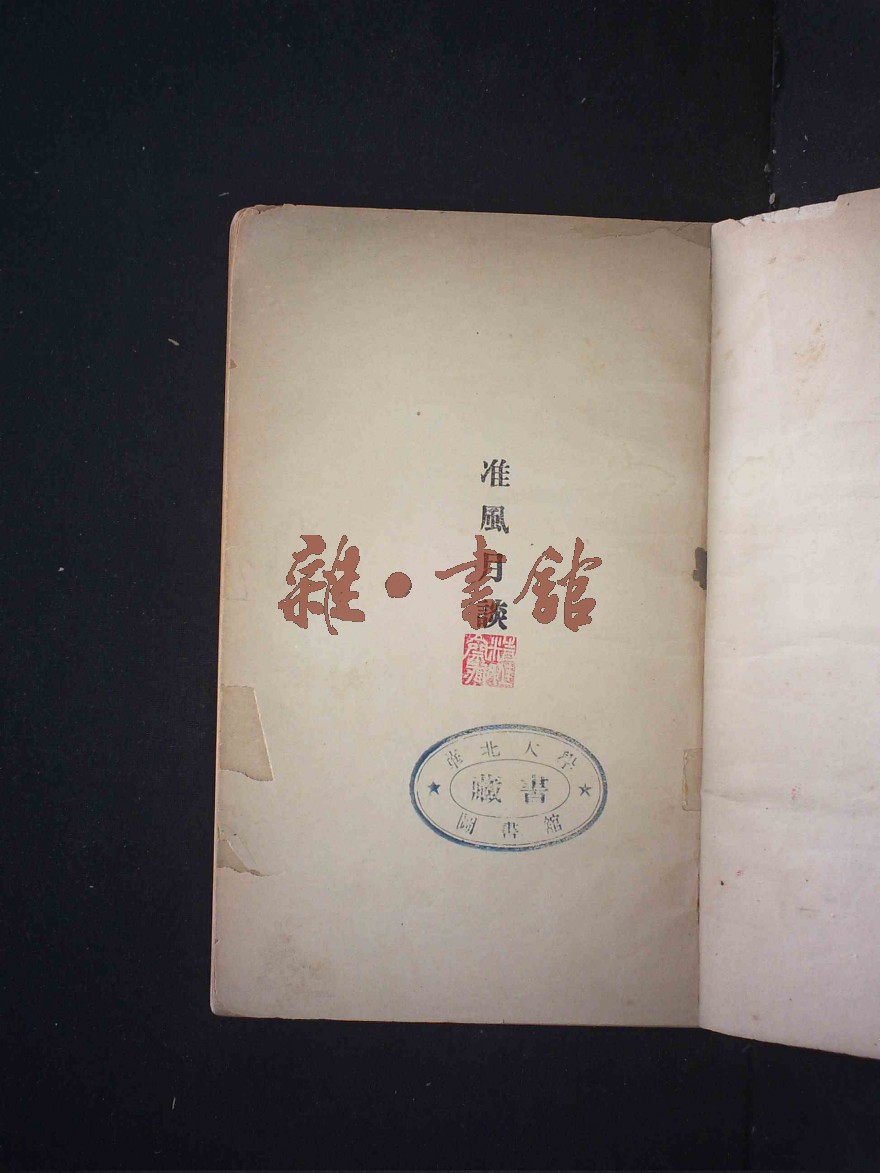 准風月談
雜·書館
華北大學
藏書
圖書館